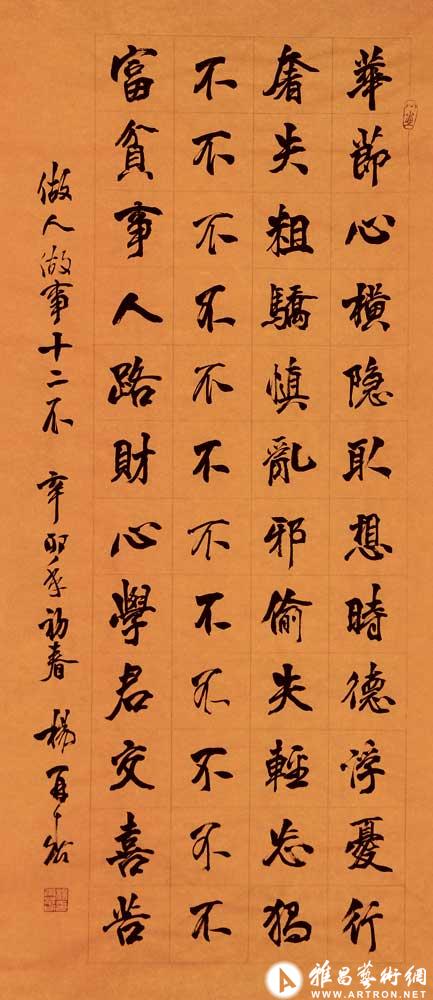 富不奢華
貧不失節
事不粗心
人不驕橫
路不慎隐
財不亂取
心不邪想
學不偷時
君不失德
交不輕浮
喜不忘憂
苦不獨行
做人做事十二不 辛卯年初春 楊
雅昌藝術網
WWW.ARTRON.NET